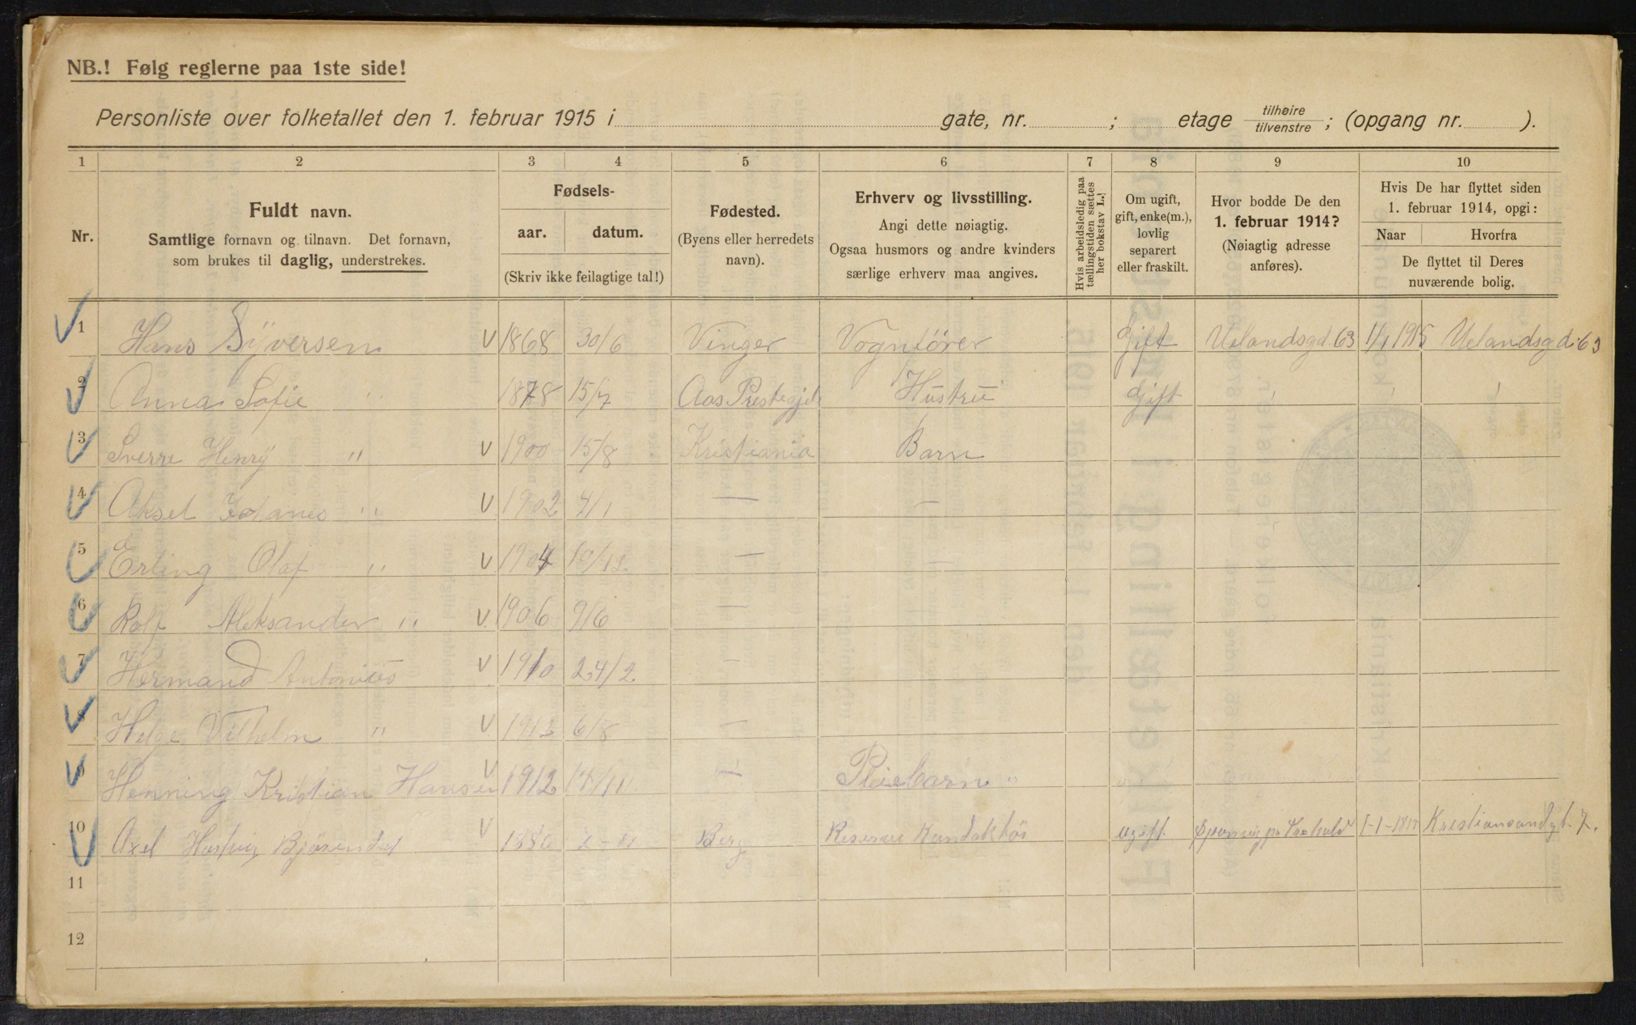 NB.! Følg reglerne paa 1ste side!
Personliste over folketallet den 1. februar 1915 i gate, nr. ; etage tilhøire / tilvenstre ; (opgang nr. ).
1 2 3 4 5 6 7 8 9 10
Nr.
Fuldt navn.
Samtlige fornavn og tilnavn. Det fornavn,
som brukes til daglig, understrekes.
Fødsels-
aar. datum.
(Skriv ikke feilagtige tal!)
Fødested.
(Byens eller herredets
navn).
Erhverv og livsstilling.
Angi dette nøiagtig.
Ogsaa husmors og andre kvinders
særlige erhverv maa angives.
Hvis arbeidsledig paa
tællingstiden sættes
her bokstav L.!
Om ugift,
gift, enke(m.),
lovlig
separert
eller fraskilt.
Hvor bodde De den
1. februar 1914?
(Nøiagtig adresse
anføres).
Hvis De har flyttet siden
1. februar 1914, opgi:
Naar Hvorfra
De flyttet til Deres
nuværende bolig.
1 Hans Syversen 1868 30/6 Vinger Vognfører Gift Uelandsgd. 63 1/1 1915 Uelandsgd. 63
2 Anna Sofie " 1878 15/7 Aas Hustru Gift " " "
3 Sverre Henry " 1900 15/8 Kristiania Barn
4 Aksel " 1902 4/1 — —
5 Erling Olaf " 1904 10/12 — —
6 Rolf Aleksander " 1906 9/6 —
7 Hermand Antonius 1910 24/2 —
8 Helge Vilhelm " 1913 6/8 —
9 Henning Kristian Hansen 1912 /11 — Pleiebarn "
10 Axel 1886 Berg Reserve ugift 1-1- Kristiansandgt. 7.
11
12